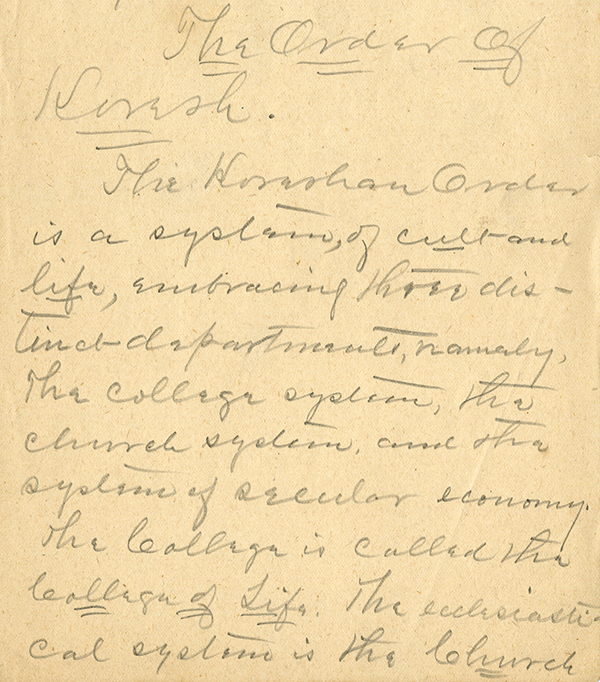 The Order Of
Koresh.
The Koreshan Order
is a system, of cult and
life, embracing three dis-
tinct departments, namely,
the college system, the
church system, and the
system of secular economy.
The College is called the
College of Life. The ecclesiasti-
cal system is the Church